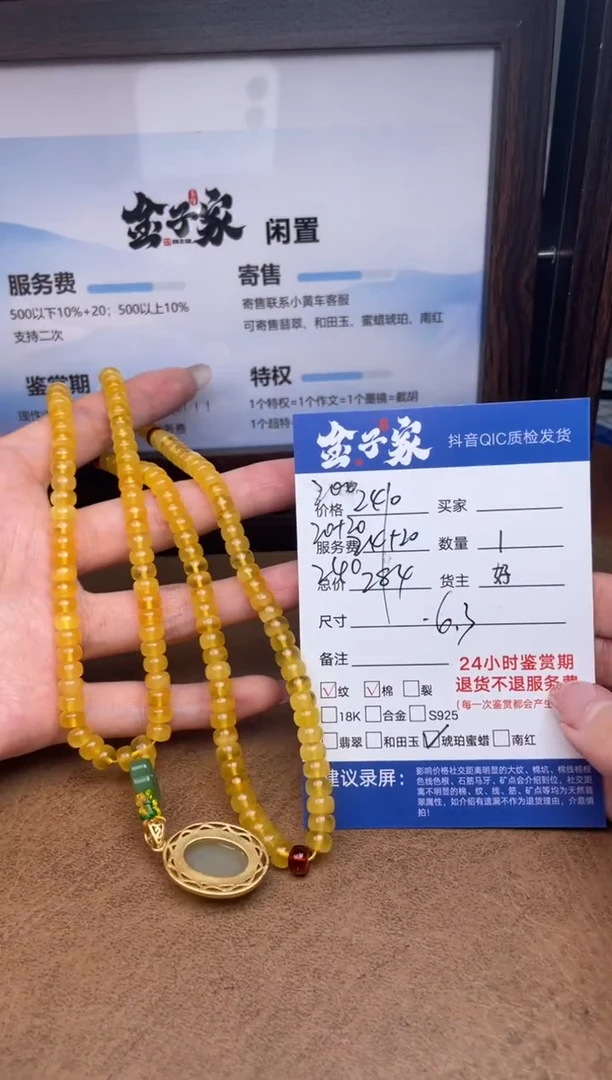 金子家 闲置
服务费
500以下10%+20；500以上10%
支持二次
寄售
寄售联系小黄车客服
可寄售翡翠、和田玉、蜜蜡琥珀、南红
鉴赏期
特权
1个特权=1个作文=1个墨镜=截胡
1个超特
金子家 抖音QIC质检发货
200
价格 240 买家
20+20
服务费 24+20 数量 1
240
总价 284 货主 好
尺寸 6.3
备注
24小时鉴赏期
退货不退服务费
(每一次鉴赏都会产生
纹 棉 裂
18K 合金 S925
翡翠 和田玉 琥珀蜜蜡 南红
建议录屏：
影响价格社交距离明显的大纹、棉坑、棉线棉根
色线色根、石筋马牙，矿点会介绍到位，社交距
离不明显的棉、纹、线、筋、矿点等均为天然翡
翠属性，如介绍有遗漏不作为退货理由，介意慎
拍！